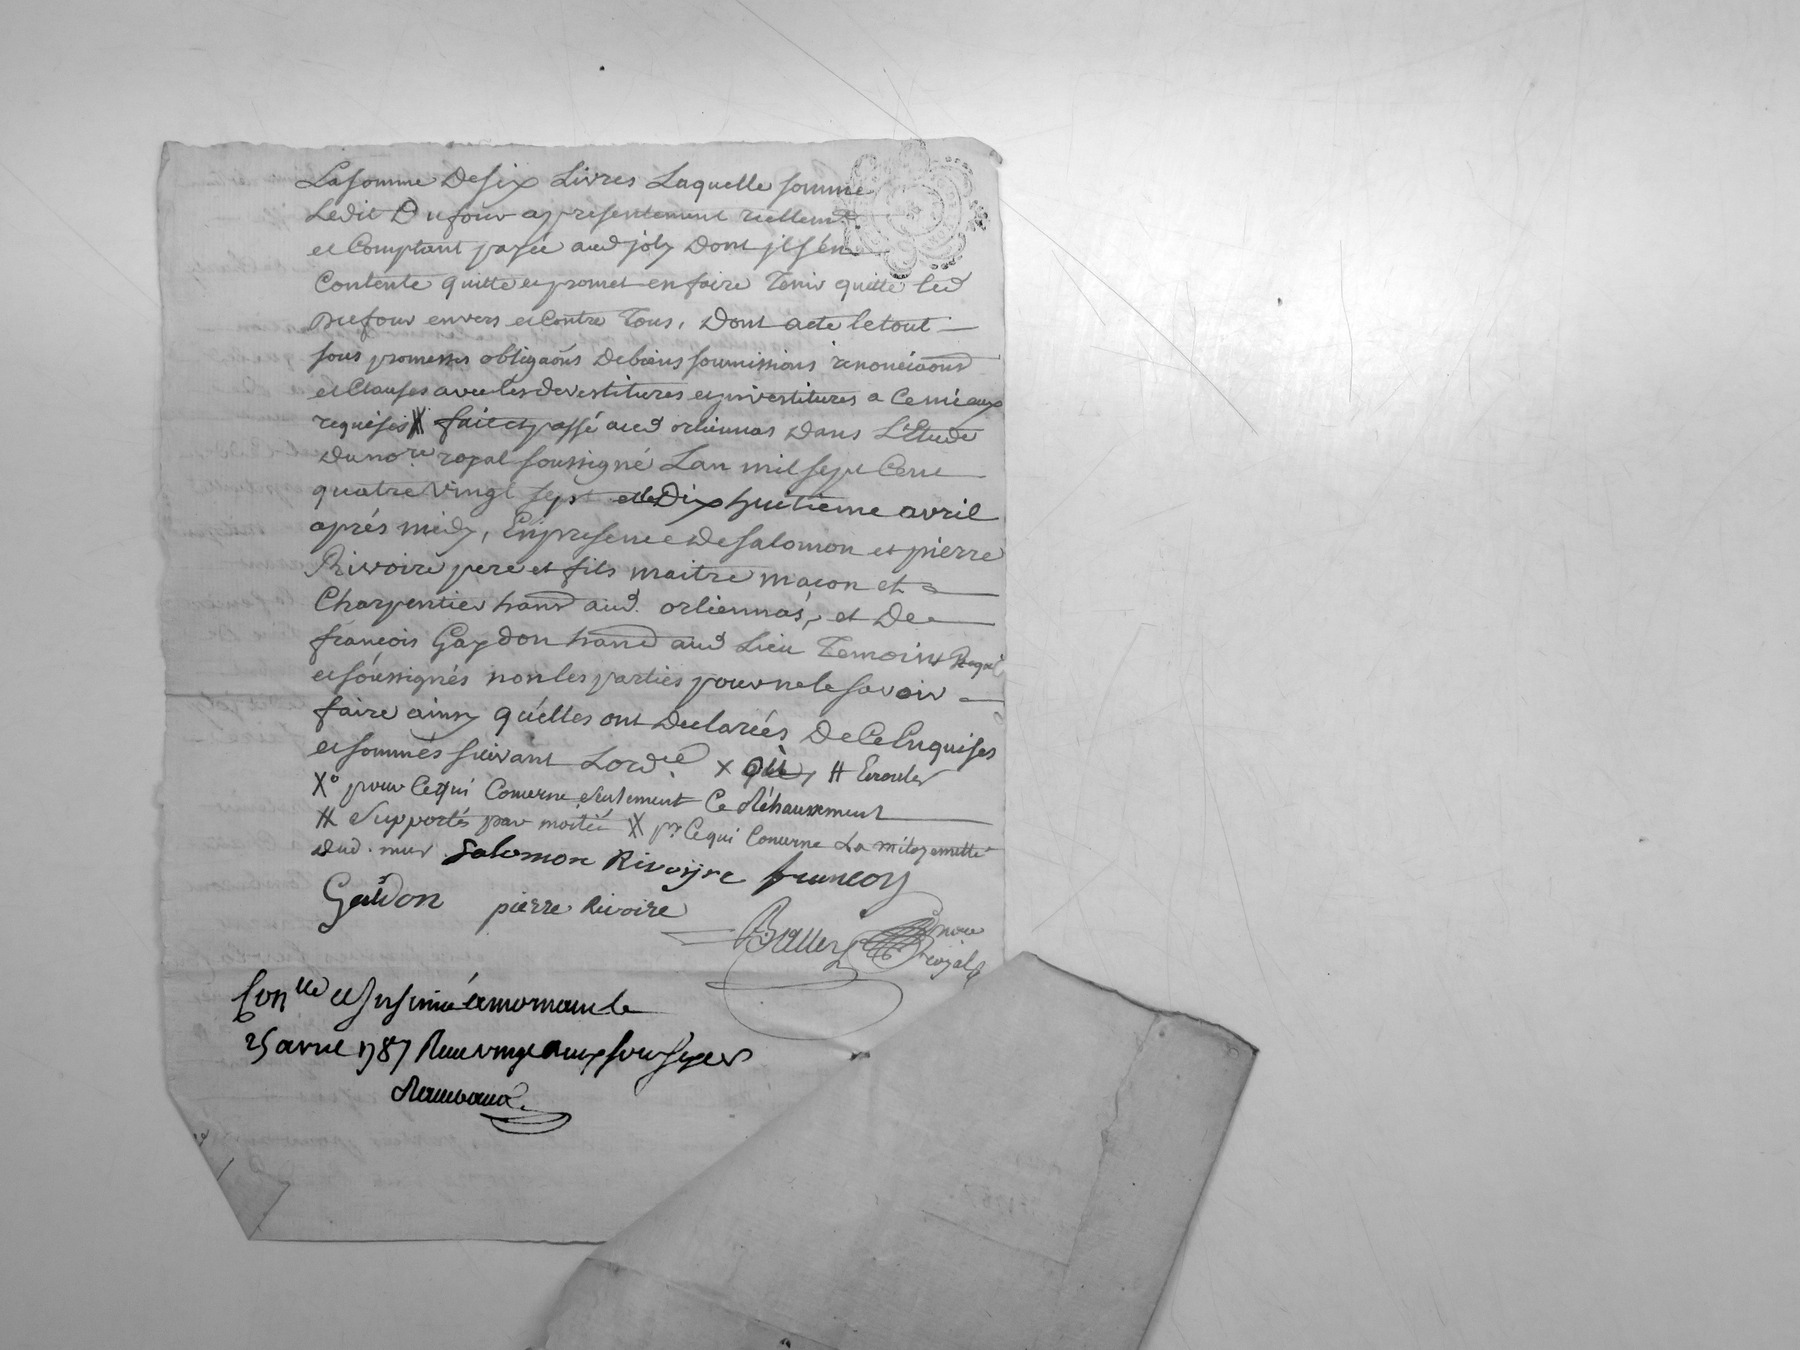 La somme de six Livres Laquelle somme
Ledit Dufour a presentement réellemt
et Comptant payée aud joly dont il s'en
Contente quitte et promet en faire Tenir quitte led
Dufour envers et Contre Tous, Dont acte le tout
sous promesses obligaõns de biens soumissions renonciaõns
et Clauses avec les devestitures et investitures a Ce
requises X fait et passé aud orliennas dans L'Etude
du nore royal soussigné Lan mil sept Cent
quatre Vingt sept et le Dix huitieme avril
aprés midy, En presence de salomon et pierre
Rivoire pere et fils maitre maçon et
Charpentier hants aud. orliennas, et De
françois Gaydon hant aud Lieu Temoins Requis
et soussignés non les parties pour ne le savoir
faire ainsy qu'elles ont declarées De Ce Enquises
et sommés suivant Lordce. x +
X° pour Ce qui Concerne seulement Ce Réhaussement
# supportés par moitié X pr Ce qui Concerne La mitoyenneté
dud. mur Salomon Rivoyre francoy
Gaidon pierre Rivoire
nore
royal
Conlle et Insinué a mornant le
25 avril 1787 Recu vingt deux sous six ds